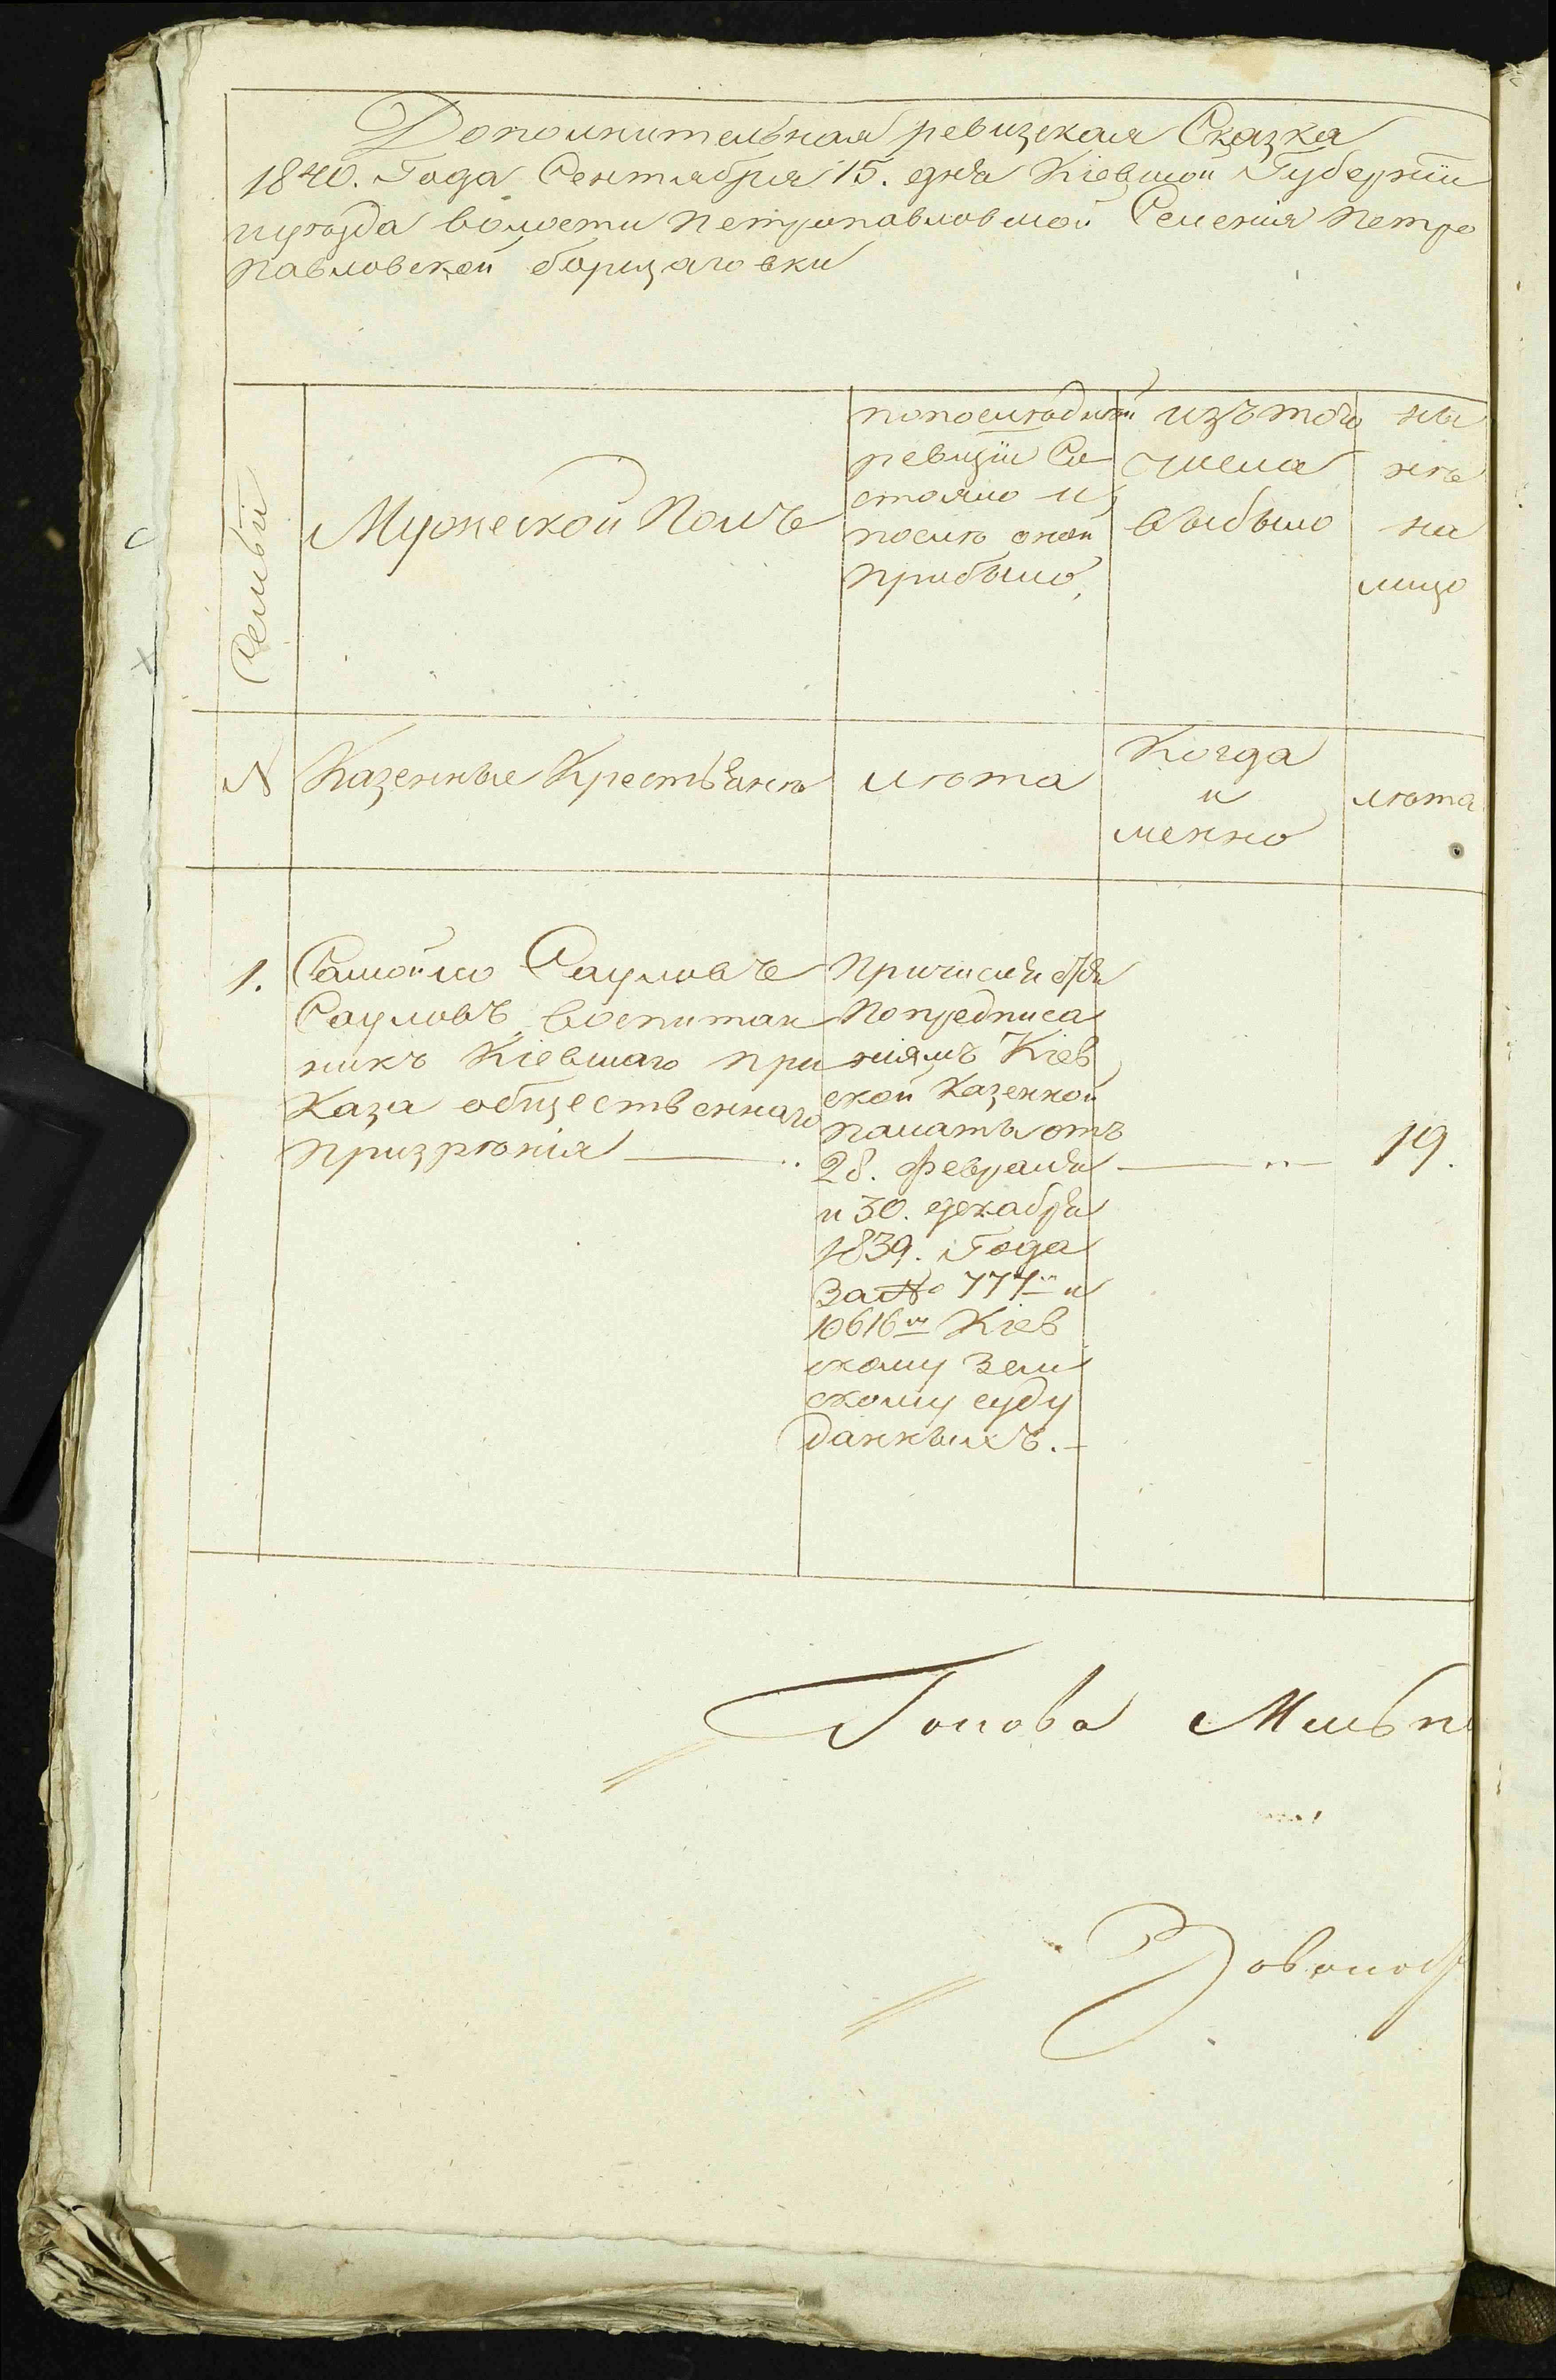 Дополнительная ревизская Сказка
1840. Года Сентября 15. дня Кіевской Губерніи
и уѣзда волости Петропавловской Селенія Петро
Павловской борщаговки
Семьи
Мужеской Полъ
попослѣдней
ревизіи Со
стояло и
послѣ оной
прибыло,
изъ того
числа
выбыло
ны
нѣ
на
лицо
№
Казенные Крестьянѣ
лѣта
Когда
и
менно
лѣта
1.
Самойло Сауловъ
Сауловъ воспитан
никъ Кіевскаго при
Каза общественнаго
призрѣнія
Причислен
Попредписа
ніямъ Кіев
ской Казенной
Палаты отъ
28. февраля
и 30. декабря
1839. Года
За № 777м и
10616м Кіев
скому Зем
скому суду
данныхъ.
19.
Голова